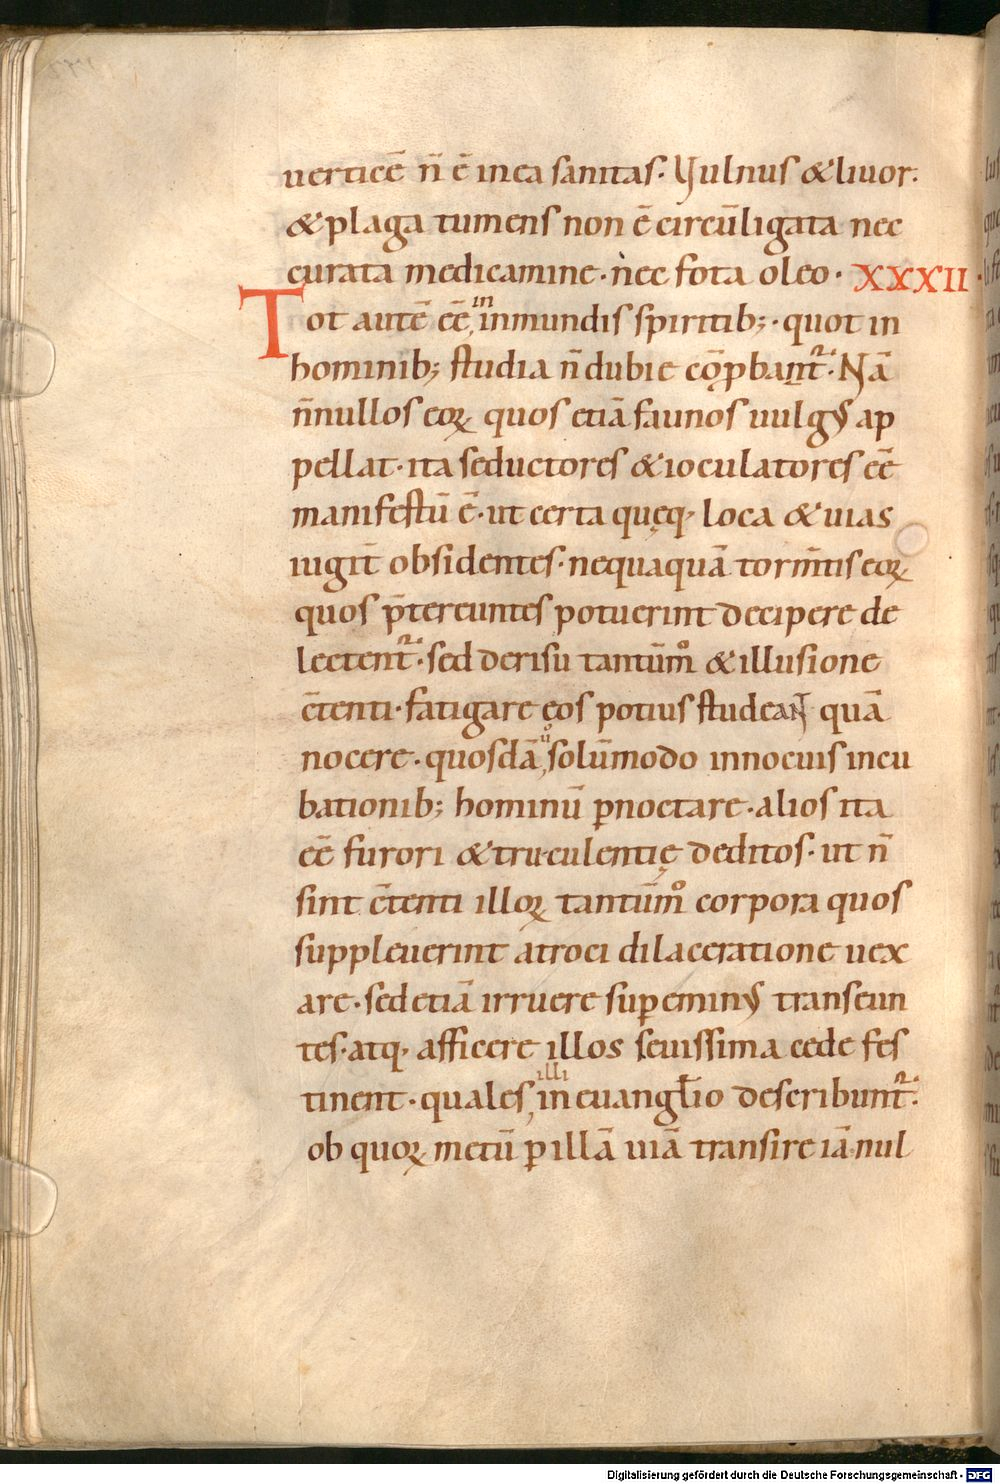 uerticē n̄ ē in ea sanitas. Vulnus & liuor.
& plaga tumens non ē circūligata nec
curata medicamine. nec fota oleo. XXXII.
Tot autē eē in inmundis spiritib; quot in
hominib; studia n̄ dubie cōprobant᷑. Nā
n̄nullos eoꝝ quos etiā faunos uulgus ap
pellat. ita seductores & ioculatores eē
manifestū ē. ut certa quęq; loca & uias
iugit̄ obsidentes. nequaquā torm̄tis eoꝝ
quos p̄tereuntes potuerint decipere de
lectent᷑. sed derisu tantūm̊ & illusione
c̄tenti. fatigare eos potius studeant quā
nocere. quosdā solūmodo innocuis incu
bationib; hominū ꝑnoctare. alios ita
eē furori & truculentię deditos. ut n̄
sint c̄tenti illoꝝ tantūm̊ corpora quos
suppleuerint atroci dilaceratione uex
are. sed etiā irruere suꝑ eminus transeun
tes. atq; afficere illos seuissima cede fes
tinent. quales illi in euanglīo describunt᷑.
ob quoꝝ metū ꝑ illā uiā transire iā nul
Digitalisierung gefördert durch die Deutsche Forschungsgemeinschaft - DFG